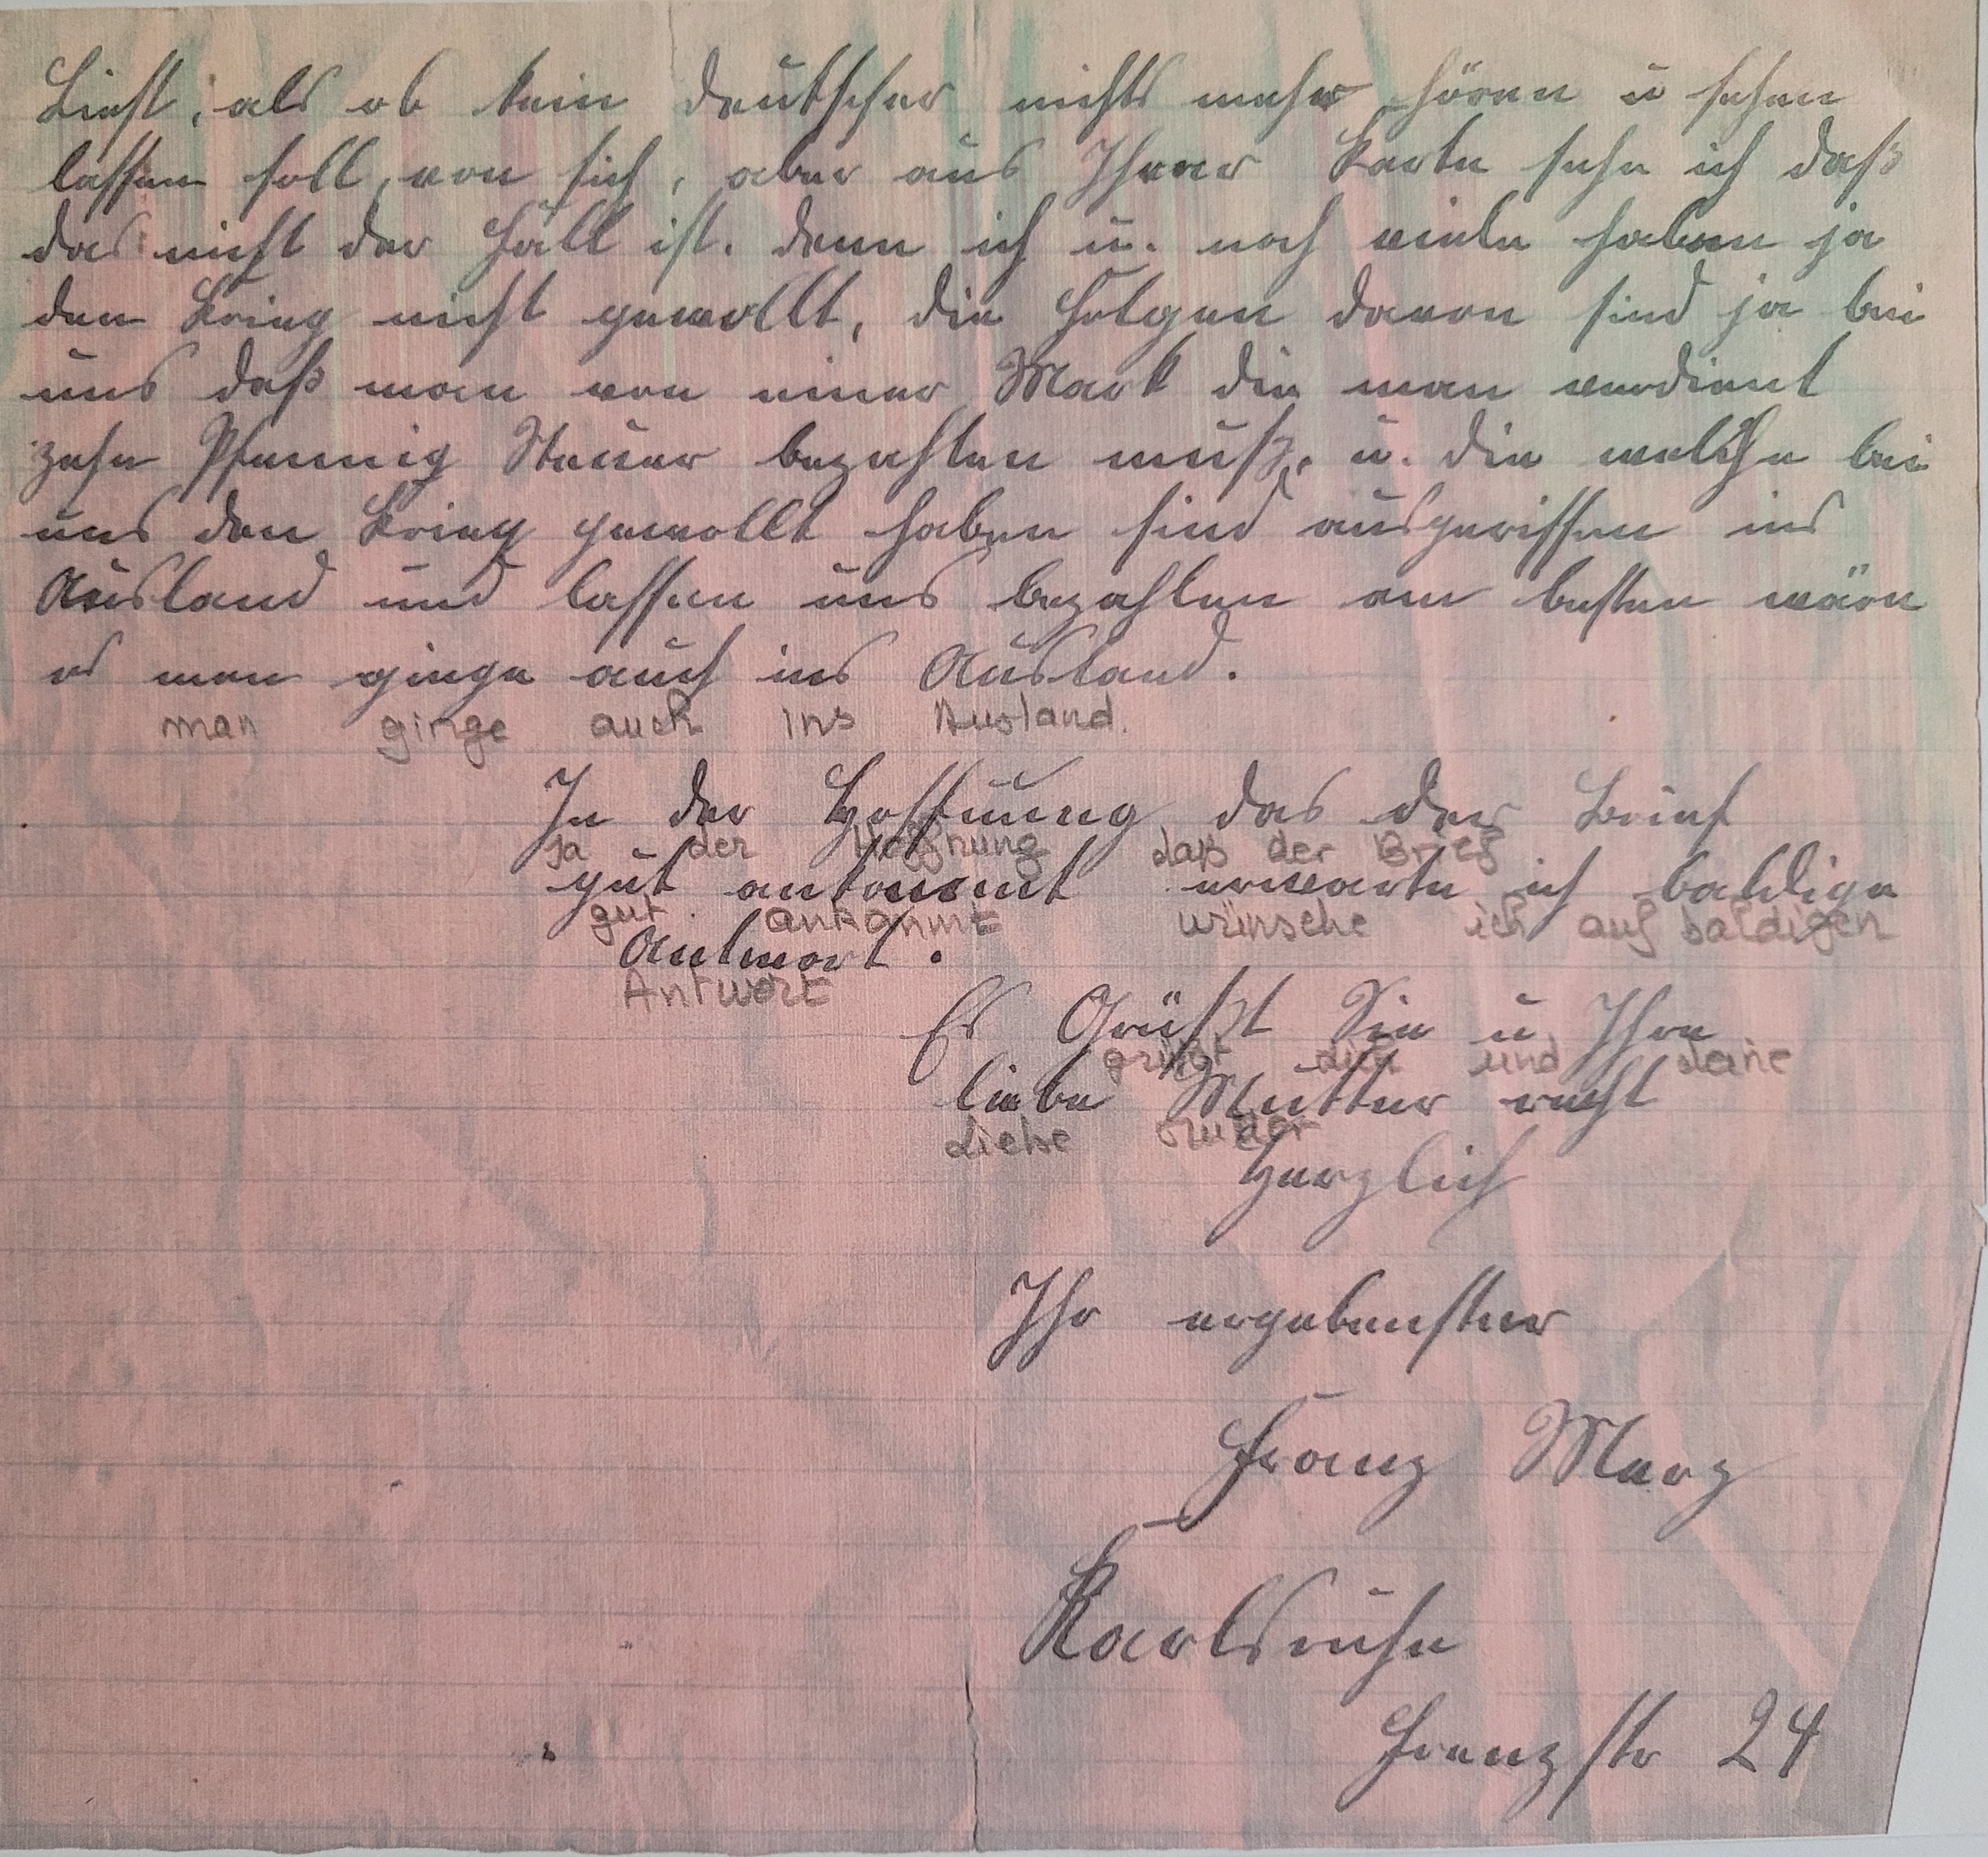 Ließt, als ob kein deutscher nichts mehr hören u sehen
lassen soll, von sich, aber aus Ihrer Karte sehe ich daß
das nicht der Fall ist. denn ich u. noch viele haben ja
den Krieg nicht gewollt, die Folgen davon sind ja bei
uns daß man von einer Mark die man verdient
zehn Pfennig Steuer bezahlen muß, u. die welche bei
uns den Krieg gewollt haben sind ausgerissen ins
Ausland und lassen uns bezahlen am besten wäre
es man ginge auch ins Ausland.
man ginge auch ins Ausland.
In der Hoffnung das der Brief
Ja der Hoffnung daß der Brief
gut ankommt erwarte ich baldige
gut ankommt wünsche ich auf baldigen
Antwort.
Antwort
Es Grüßt Sie u Ihre
grüßt dich und deine
liebe Mutter recht
Liebe Mutter
Herzlich
Ihr ergebenster
Franz Merz
Karlsruhe
str 24